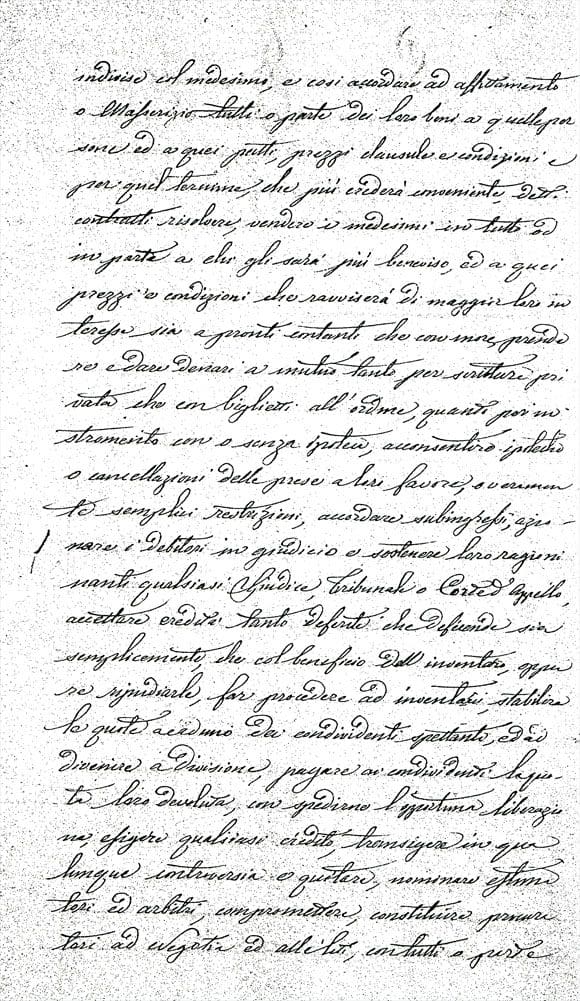 indivise col medesimo, e così accordare ad affittamento
o Masserizio tutti o parte dei loro beni a quelle per
sone ed a quei patti, prezzi clausule e condizioni e
per quel termine, che più crederà conveniente, detti
contratti risolvere, vendere i medesimi in tutto od
in parte a chi gli sarà più beneviso, ed a quei
prezzi e condizioni che ravviserà di maggior loro in
teresse sia a pronti contanti che con more, prende
re e dare denari a mutuo tanto per scrittura pri
vata che con biglietti all'ordine, quanto per in
stromento con o senza ipoteca, acconsentire ipoteche
o cancellazioni delle prese a loro favore, o veramen
te semplici restrizioni, accordare subingressi, azio-
nare i debitori in giudicio e sostenere loro ragioni
nanti qualsiasi Giudice, Tribunale o Corte d'Appello,
accettare eredità tanto deferte che deferende sia
semplicemente che col beneficio dell'inventaro, oppu
re ripudiarle, far procedere ad inventari stabilire
le quote a caduno dei condividenti spettanti, ed ad
divenire a divisione, pagare ai condividenti la quo
ta loro devoluta, con spedirne l'opportuna liberazio
ne, esigere qualsiasi credito, transigere in qua
lunque controversia e quitare, nominare estima
tori ed arbitri, compromettere, constituire procura
tori ad negotia ed alle liti, con tutti o parte